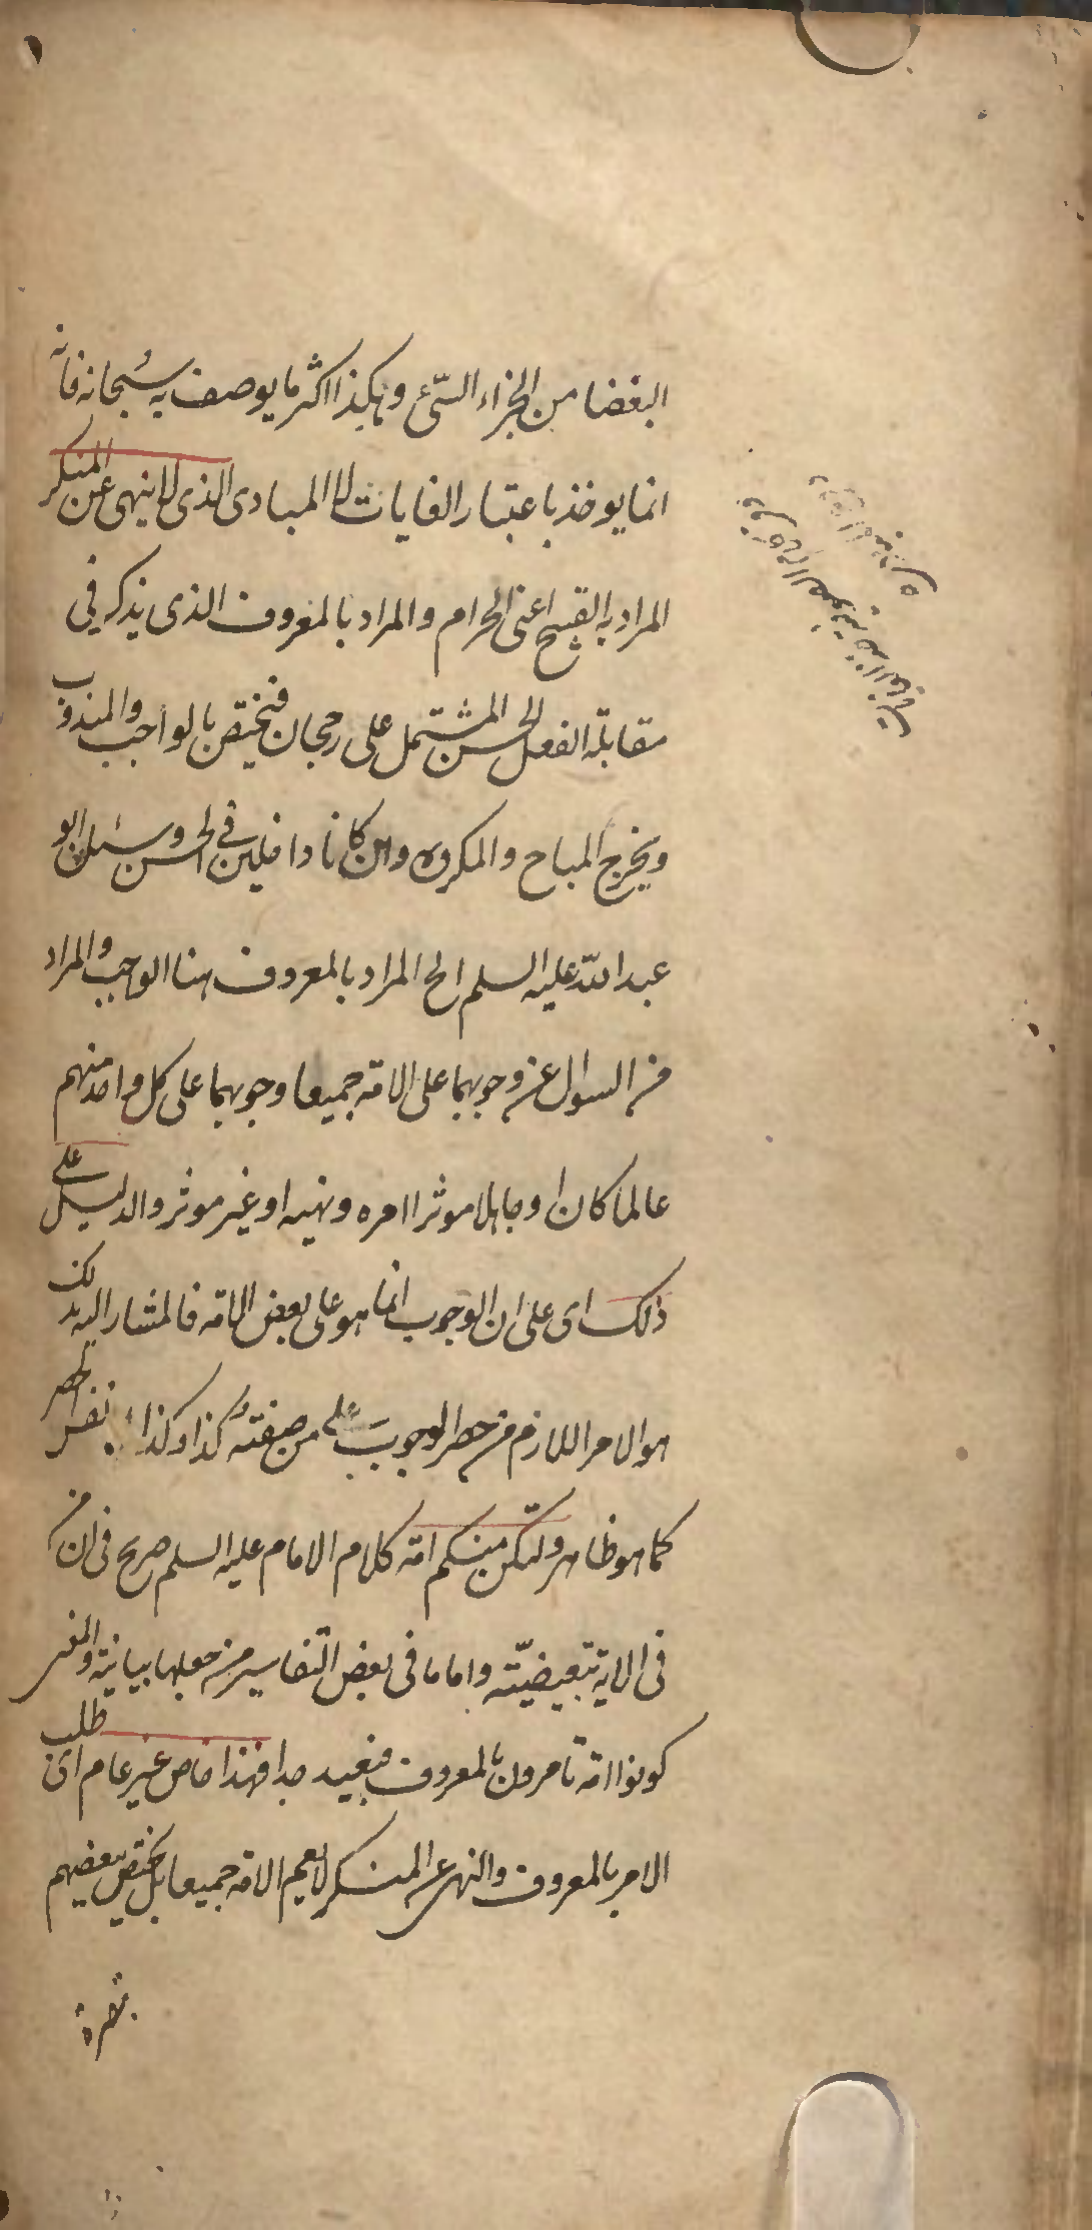 البغضا من الجزاء السيّئ وهكذا اكثر ما يوصف به سبحانه فانه
انما يوخذ باعتبار الغايات لا المبادى الذى لا ينهى عن المنكر
المراد به القبيح اعنى الحرام والمراد بالمعروف الذى يذكر في
مقابلة الفعل الحسن المشتمل على رجحان فيختص بالواجب والمندوب
ويخرج المباح والمكروه وان كانا داخلين في الحسن وسئل ابو
عبد الله عليه السلم الخ المراد بالمعروف هنا الواجب والمراد
من السوال عن وجوبهما على الامة جميعا وجوبهما على كل واحد منهم
عالما كان او جاهلا موثرا امره ونهيه او غير موثر والدليل على
ذلك اى على ان الوجوب انما هو على بعض الامة فالمشار اليه بذلك
هو الامر اللازم من حصر الوجوب على من صفته كذا وكذا نفس الحصر
كما هو ظاهر ولتكن منكم امة كلام الامام عليه السلم صريح فى ان من
فى الاية تبعيضيّة واما ما فى بعض التفاسير من جعلها بيانية والمعنى
كونوا امة تامرون بالمعروف فبعيد جدا فهذا خاص غير عام اى طلب
الامر بالمعروف والنهى عن المنكر لا يعم الامة جميعا بل يختص ببعضهم